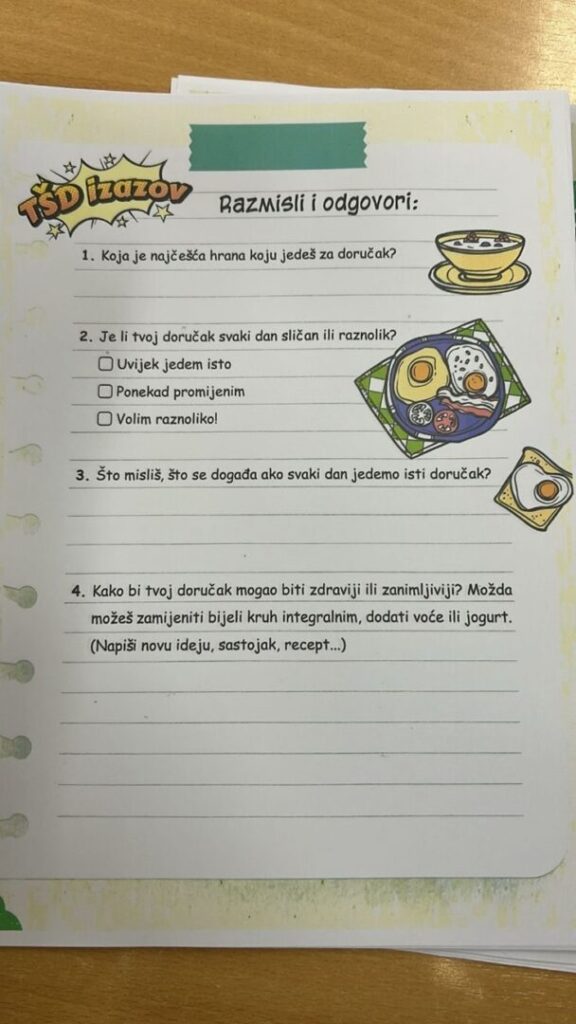 TŠD izazov
Razmisli i odgovori:
1. Koja je najčešća hrana koju jedeš za doručak?
2. Je li tvoj doručak svaki dan sličan ili raznolik?
Uvijek jedem isto
Ponekad promijenim
Volim raznoliko!
3. Što misliš, što se događa ako svaki dan jedemo isti doručak?
4. Kako bi tvoj doručak mogao biti zdraviji ili zanimljiviji? Možda
možeš zamijeniti bijeli kruh integralnim, dodati voće ili jogurt.
(Napiši novu ideju, sastojak, recept...)